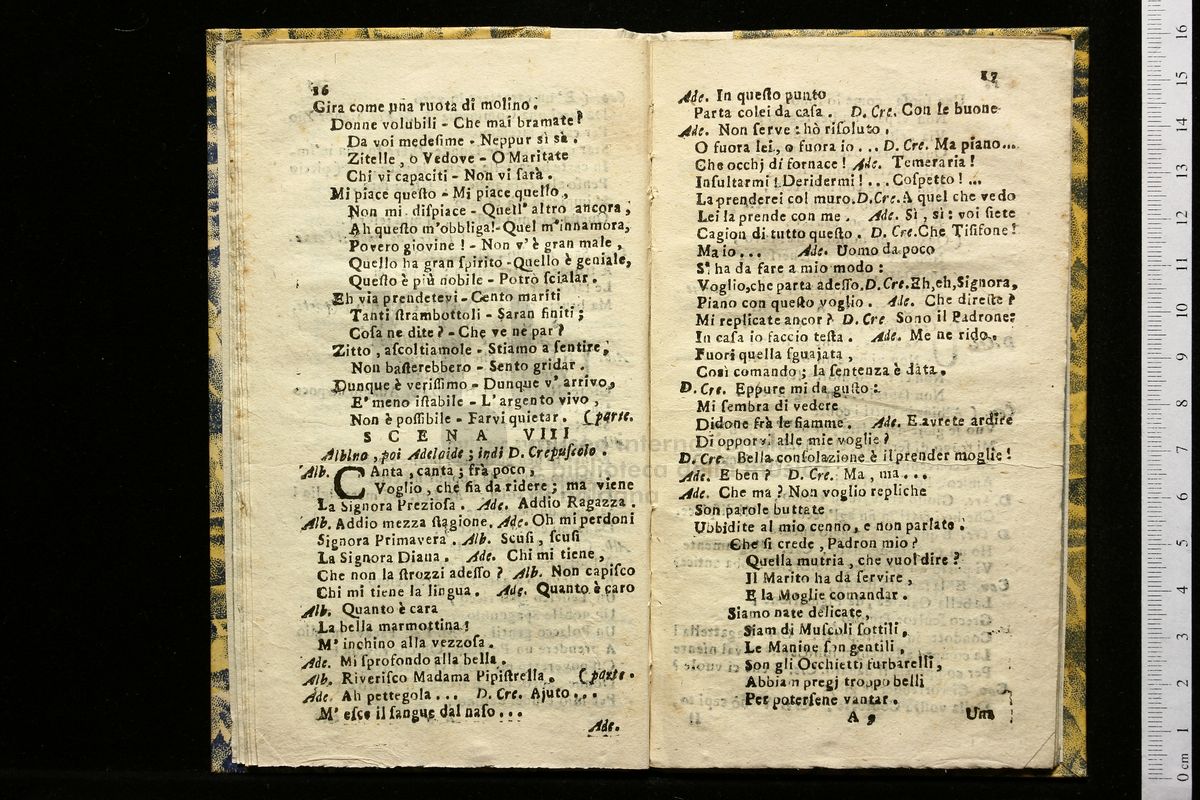 16
Gira come una ruota di molino.
Donne volubili - Che mai bramate?
Da voi medeſime - Neppur si sà.
Zitelle, o Vedove - O Maritate
Chi vi capaciti - Non vi ſarà.
Mi piace queſto - Mi piace quello,
Non mi diſpiace - Quell' altro ancora,
Ah queſto m'obbliga!-Quel m'innamora,
Povero giovine! - Non v'è gran male,
Quello ha gran ſpirito -Quello è geniale,
Queſto è più nobile - Potrò ſcialar.
Eh via prendetevi - Cento mariti
Tanti ſtrambottoli - Saran finiti;
Coſa ne dite? - Che ve ne par?
Zitto, aſcoltiamole - Stiamo a ſentire,
Non baſterebbero - Sento gridar.
Dunque è veriſſimo - Dunque v' arrivo,
E' meno iſtabile - L'argento vivo,
Non è poſſibile - Farvi quietar. (parte.
SCENA VIII
Albino, poi Adelaide; indi D. Crepuſcolo.
Alb. CAnta, canta; frà poco
Voglio, che ſia da ridere; ma viene
La Signora Prezioſa. Ade. Addio Ragazza.
Alb. Addio mezza ſtagione. Ade. Oh mi perdoni
Signora Primavera. Alb. Scuſi, ſcuſi
La Signora Diana. Ade. Chi mi tiene,
Che non la ſtrozzi adeſſo? Alb. Non capiſco
Chi mi tiene la lingua. Ade. Quanto è caro
Alb. Quanto è cara
La bella marmottina!
M' inchino alla vezzoſa.
Ade. Mi ſprofondo alla bella.
Alb. Riveriſco Madama Pipiſtrella. (parte.
Ade. Ah pettegola... D. Cre. Ajuto...
M' eſce il ſangue dal naſo...
Ade.
17
Ade. In queſto punto
Parta colei da caſa. D. Cre. Con le buone
Ade. Non ſerve: hò riſoluto.
O fuora lei, o fuora io... D. Cre. Ma piano...
Che occhj di fornace! Ade. Temeraria!
Inſultarmi! Deridermi!... Coſpetto!...
La prenderei col muro.D.Cre.A quel che vedo
Lei la prende con me. Ade. Sì, sì: voi ſiete
Cagion di tutto queſto. D. Cre.Che Tiſifone!
Ma io... Ade. Uomo da poco
S' ha da fare a mio modo:
Voglio,che parta adeſſo.D.Cre.Eh,eh,Signora,
Piano con queſto voglio. Ade. Che direſte?
Mi replicate ancor? D. Cre Sono il Padrone:
In caſa io faccio teſta. Ade. Me ne rido.
Fuori quella ſguajata,
Così comando; la ſentenza è data.
D. Cre. Eppure mi da guſto:
Mi ſembra di vedere
Didone frà le fiamme. Ade. E avrete ardire
Di opporvi alle mie voglie?
D. Cre. Bella conſolazione è il prender moglie!
Ade. E ben? D. Cre. Ma, ma...
Ade. Che ma? Non voglio repliche
Son parole buttate
Ubbidite al mio cenno, e non parlate.
Che ſi crede, Padron mio?
Quella mutria, che vuol dire?
Il Marito ha da ſervire,
E la Moglie comandar.
Siamo nate delicate,
Siam di Muſcoli ſottili,
Le Manine ſon gentili,
Son gli Occhietti furbarelli,
Abbiam pregj troppo belli
Per poterſene vantar.
A 9
Una